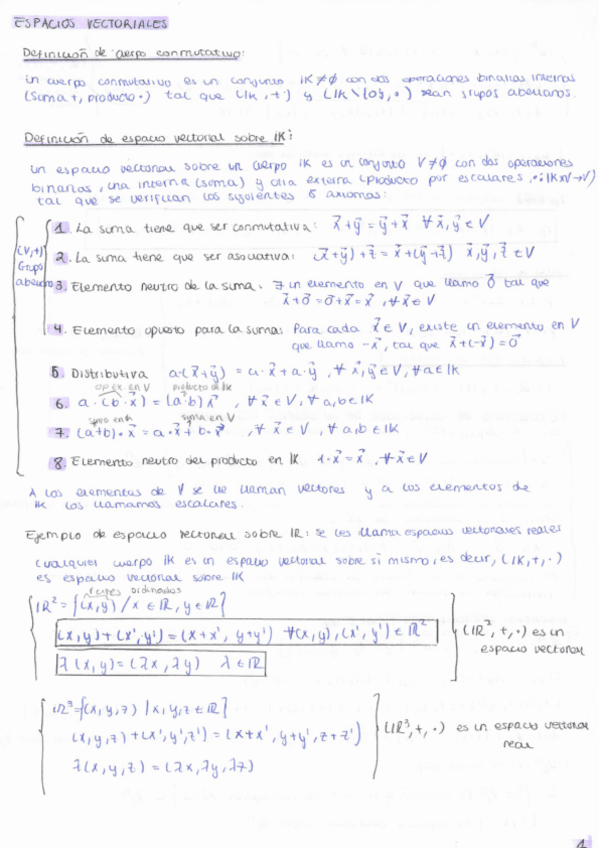 ESPACIOS VECTORIALES
Definición de cuerpo conmutativo:
Un cuerpo conmutativo es un conjunto IK≠∅ con dos operaciones binarias internas
(suma +, producto ·) tal que (IK,+) y (IK\{0},·) sean grupos abelianos.
Definición de espacio vectorial sobre IK:
Un espacio vectorial sobre un cuerpo IK es un conjunto V≠∅ con dos operaciones
binarias, una interna (suma) y otra externa (producto por escalares, ·: IK×V→V)
tal que se verifican los siguientes 8 axiomas:
(V,+)
Grupo
abeliano
1. La suma tiene que ser conmutativa: x⃗+y⃗=y⃗+x⃗ ∀x⃗,y⃗∈V
2. La suma tiene que ser asociativa: (x⃗+y⃗)+z⃗=x⃗+(y⃗+z⃗) x⃗,y⃗,z⃗∈V
3. Elemento neutro de la suma: ∃ un elemento en V que llamo 0⃗ tal que
x⃗+0⃗=0⃗+x⃗=x⃗, ∀x⃗∈V
4. Elemento opuesto para la suma: Para cada x⃗∈V, existe un elemento en V
que llamo -x⃗, tal que x⃗+(-x⃗)=0⃗
5. Distributiva a·(x⃗+y⃗)=a·x⃗+a·y⃗, ∀x⃗,y⃗∈V, ∀a∈IK
op ex. en V producto de IK
6. a·(b·x⃗)=(a·b)x⃗, ∀x⃗∈V, ∀a,b∈IK
suma en IK suma en V
7. (a+b)·x⃗=a·x⃗+b·x⃗, ∀x⃗∈V, ∀a,b∈IK
8. Elemento neutro del producto en IK 1·x⃗=x⃗, ∀x⃗∈V
A los elementos de V se le llaman vectores y a los elementos de
IK los llamamos escalares.
Ejemplo de espacio vectorial sobre IR: se les llama espacios vectoriales reales
cualquier cuerpo IK es un espacio vectorial sobre si mismo, es decir, (IK,+,·)
es espacio vectorial sobre IK
pares ordinados
IR²={(x,y)/x∈IR, y∈IR}
(x,y)+(x',y')=(x+x', y+y') ∀(x,y),(x',y')∈IR²
λ(x,y)=(λx,λy) λ∈IR
(IR²,+,·) es un
espacio vectorial
IR³={(x,y,z)/x,y,z∈IR}
(x,y,z)+(x',y',z')=(x+x',y+y',z+z')
λ(x,y,z)=(λx,λy,λz)
(IR³,+,·) es un espacio vectorial
real
1